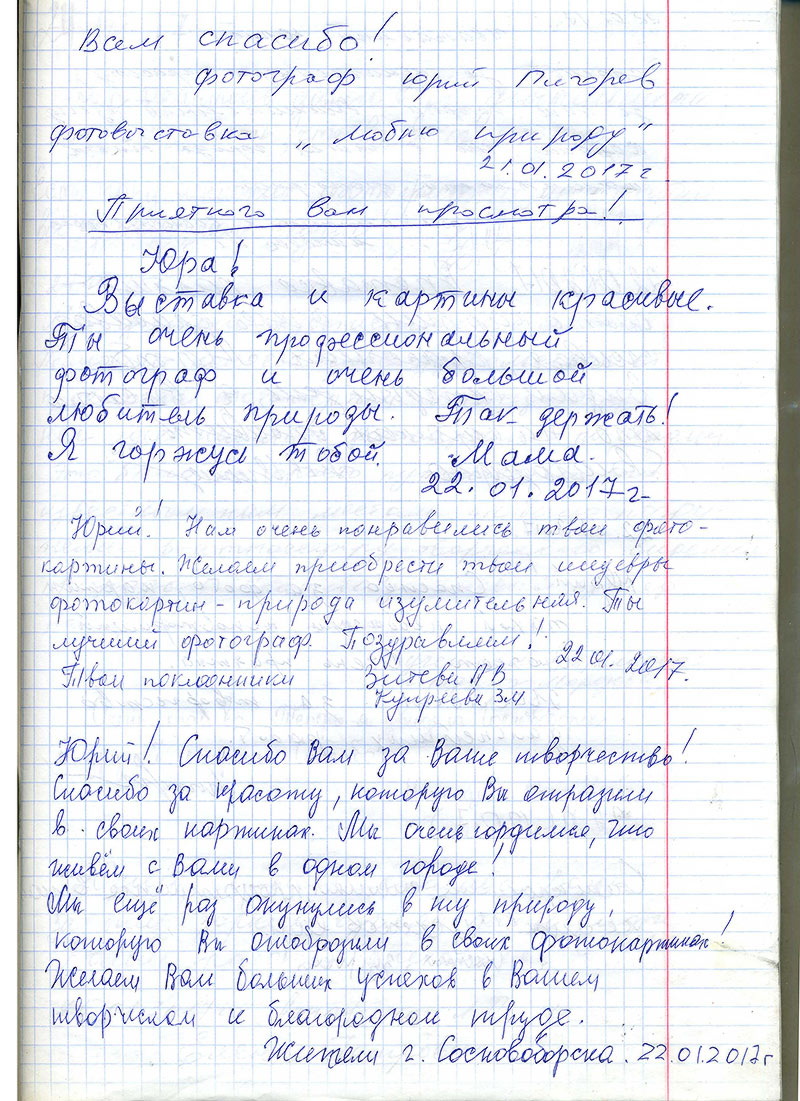 Всем спасибо!
фотограф Юрий Пигорев
фотовыставка „Люблю природу"
21.01.2017г
Приятного вам просмотра!
Юра!
Выставка и картины красивые.
Ты очень профессиональный
фотограф и очень большой
любитель природы. Так держать!
Я горжусь тобой. Мама.
22.01.2017г
Юрий! Нам очень понравились твои фото-
картины. Желаем приобрести твои шедевры
фотокартин - природа изумительная. Ты
лучший фотограф. Поздравляем!
22.01.2017.
Твои поклонники
Юрий! Спасибо Вам за Ваше творчество!
Спасибо за красоту, которую Вы отразили
в своих картинах. Мы очень гордимся, что
живём с Вами в одном городе!
Мы ещё раз окунулись в ту природу,
которую Вы отобразили в своих фотокартинах!
Желаем Вам больших успехов в Вашем
творческом и благородном труде.
Жители г. Сосновоборска. 22.01.2017г